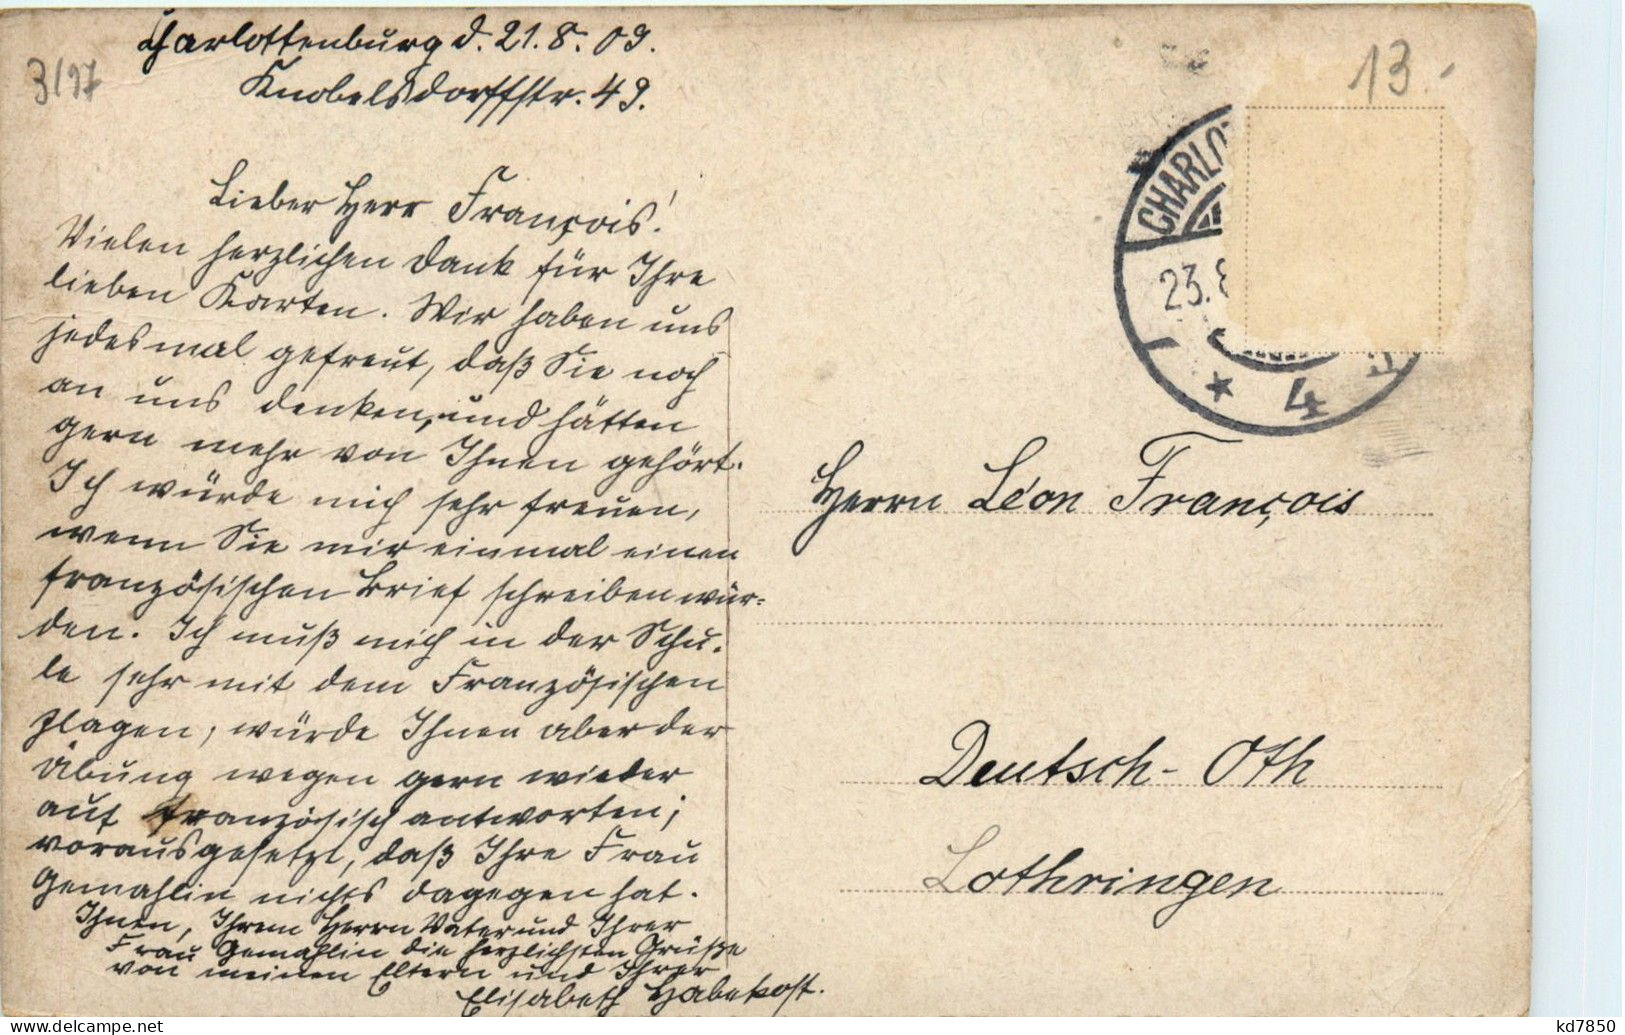 Charlottenburg d. 21.8.09.
Knobelsdorffstr. 49.
3/97
13.-
CHARLO
23.8
* 4
Lieber Herr François!
Vielen herzlichen Dank für Ihre
lieben Karten. Wir haben uns
jedesmal gefreut, daß Sie noch
an uns denken, und hätten
gern mehr von Ihnen gehört.
Ich würde mich sehr freuen,
wenn Sie mir einmal einen
französischen Brief schreiben wür=
den. Ich muß mich in der Schu-
le sehr mit dem Französischen
plagen, würde Ihnen aber der
Übung wegen gern wieder
auf französisch antworten;
vorausgesetzt, daß Ihre Frau
Gemahlin nichts dagegen hat.
Ihnen, Ihrem Herrn Vater und Ihrer
Frau Gemahlin die herzlichsten Grüße
von meinen Eltern und Ihrer
Elisabeth Habekost.
Herrn Léon François
Deutsch-Oth
Lothringen
kd7850